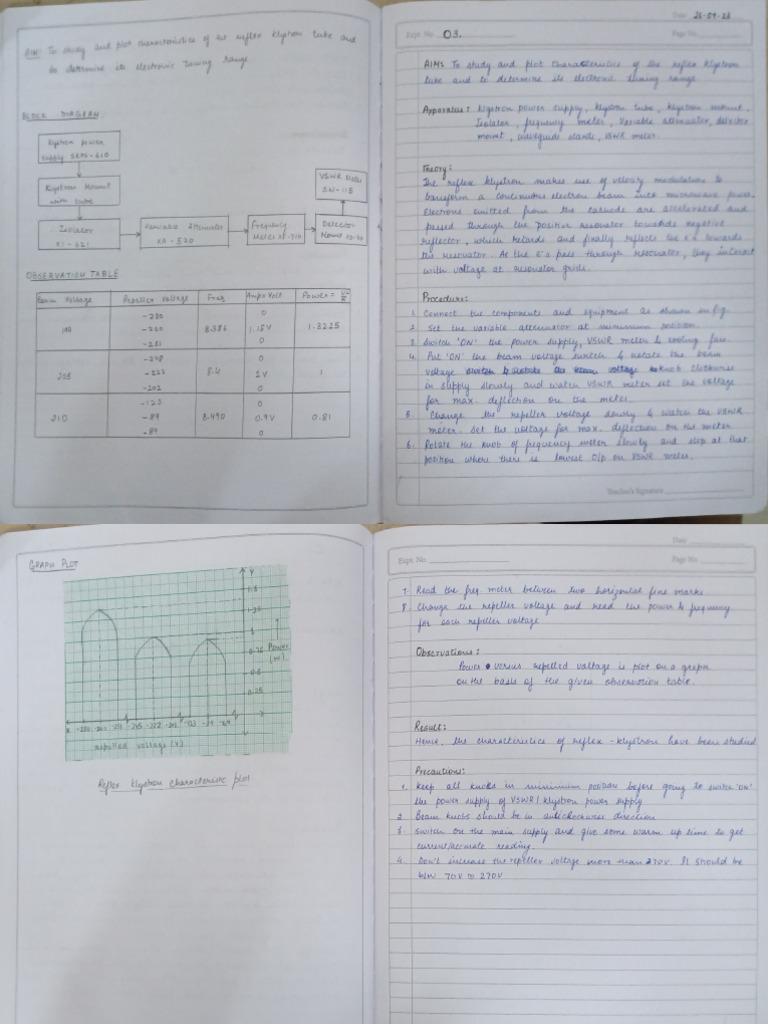 AIM: To study and plot characteristics of the reflex klystron tube and
to determine its electronic tuning range
BLOCK DIAGRAM
Klystron power
supply SKPS-610
Klystron Mount
with tube
Isolator
XI-621
Variable Attenuator
XA-520
Frequency
Meter XF-710
Detector
Mount
VSWR Meter
SW-115
OBSERVATION TABLE
Beam Voltage Repeller Voltage Freq Amps Volt Power =
8.386 1.15V 1.3225
0
0
205 8.4 1V 1
-202 0
-123 0
210 -89 8.490 0.9V 0.81
0
Date 26-04-23
Expt. No. 03. Page No.
AIM: To study and plot characteristics of the reflex klystron
tube and to determine its electronic tuning range
Apparatus: Klystron power supply, klystron tube, klystron mount,
Isolator, frequency meter, variable attenuator, detector
mount, waveguide stands, VSWR meter.
Theory:
The reflex klystron makes use of velocity modulation to
transform a continuous electron beam into microwave power.
Electrons emitted from the cathode are accelerated and
passed through the positive resonator towards negative
reflector, which retards and finally reflects the e's towards
the resonator. As the e's pass through resonator, they interact
with voltage at resonator grids.
Procedure:
1. Connect the components and equipment as shown in fig.
2. Set the variable attenuator at minimum position.
3. Switch 'ON' the power supply, VSWR meter & cooling fan.
4. Put 'ON' the beam voltage switch & rotate the beam
voltage knob clockwise
in supply slowly and watch VSWR meter set the voltage
for max. deflection on the meter.
5. Change the repeller voltage slowly & watch the VSWR
meter. Set the voltage for max. deflection on the meter
6. Rotate the knob of frequency meter slowly and stop at that
position where there is lowest O/p on VSWR meter.
Teacher's Signature
GRAPH PLOT
Y
1.5
1.25
1
0.75
0.5
0.25
Power
(w)
X
repelled voltage (V)
Reflex klystron characteristic plot
Date
Expt. No. Page No.
7. Read the freq meter between two horizontal fine marks
8. Change the repeller voltage and read the power & frequency
for each repeller voltage
Observations:
Power versus repelled voltage is plot on a graph
on the basis of the given observation table.
Result:
Hence, the characteristics of reflex-klystron have been studied
Precautions:
1. Keep all knobs in minimum position before going to switch 'ON'
the power supply of VSWR/klystron power supply
2. Beam knobs should be in anticlockwise direction
3. Switch on the main supply and give some warm up time to get
current/accurate reading.
4. Don't increase the repeller voltage more than 270V. It should be
b/w 70V to 270V